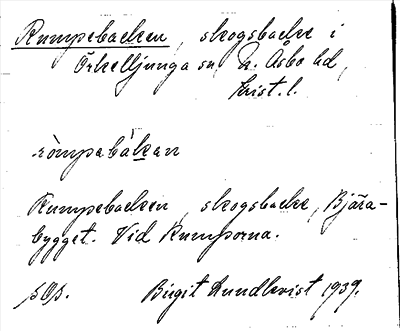 Rumpebacken, skogsbacke i
Örkelljunga sn, N. Åsbo hd,
Krist. l.
ròmpebákan
Rumpebacken, skogsbacke, Bjära-
bygget. Vid Rumporna.
Birgit Lundkvist 1939.